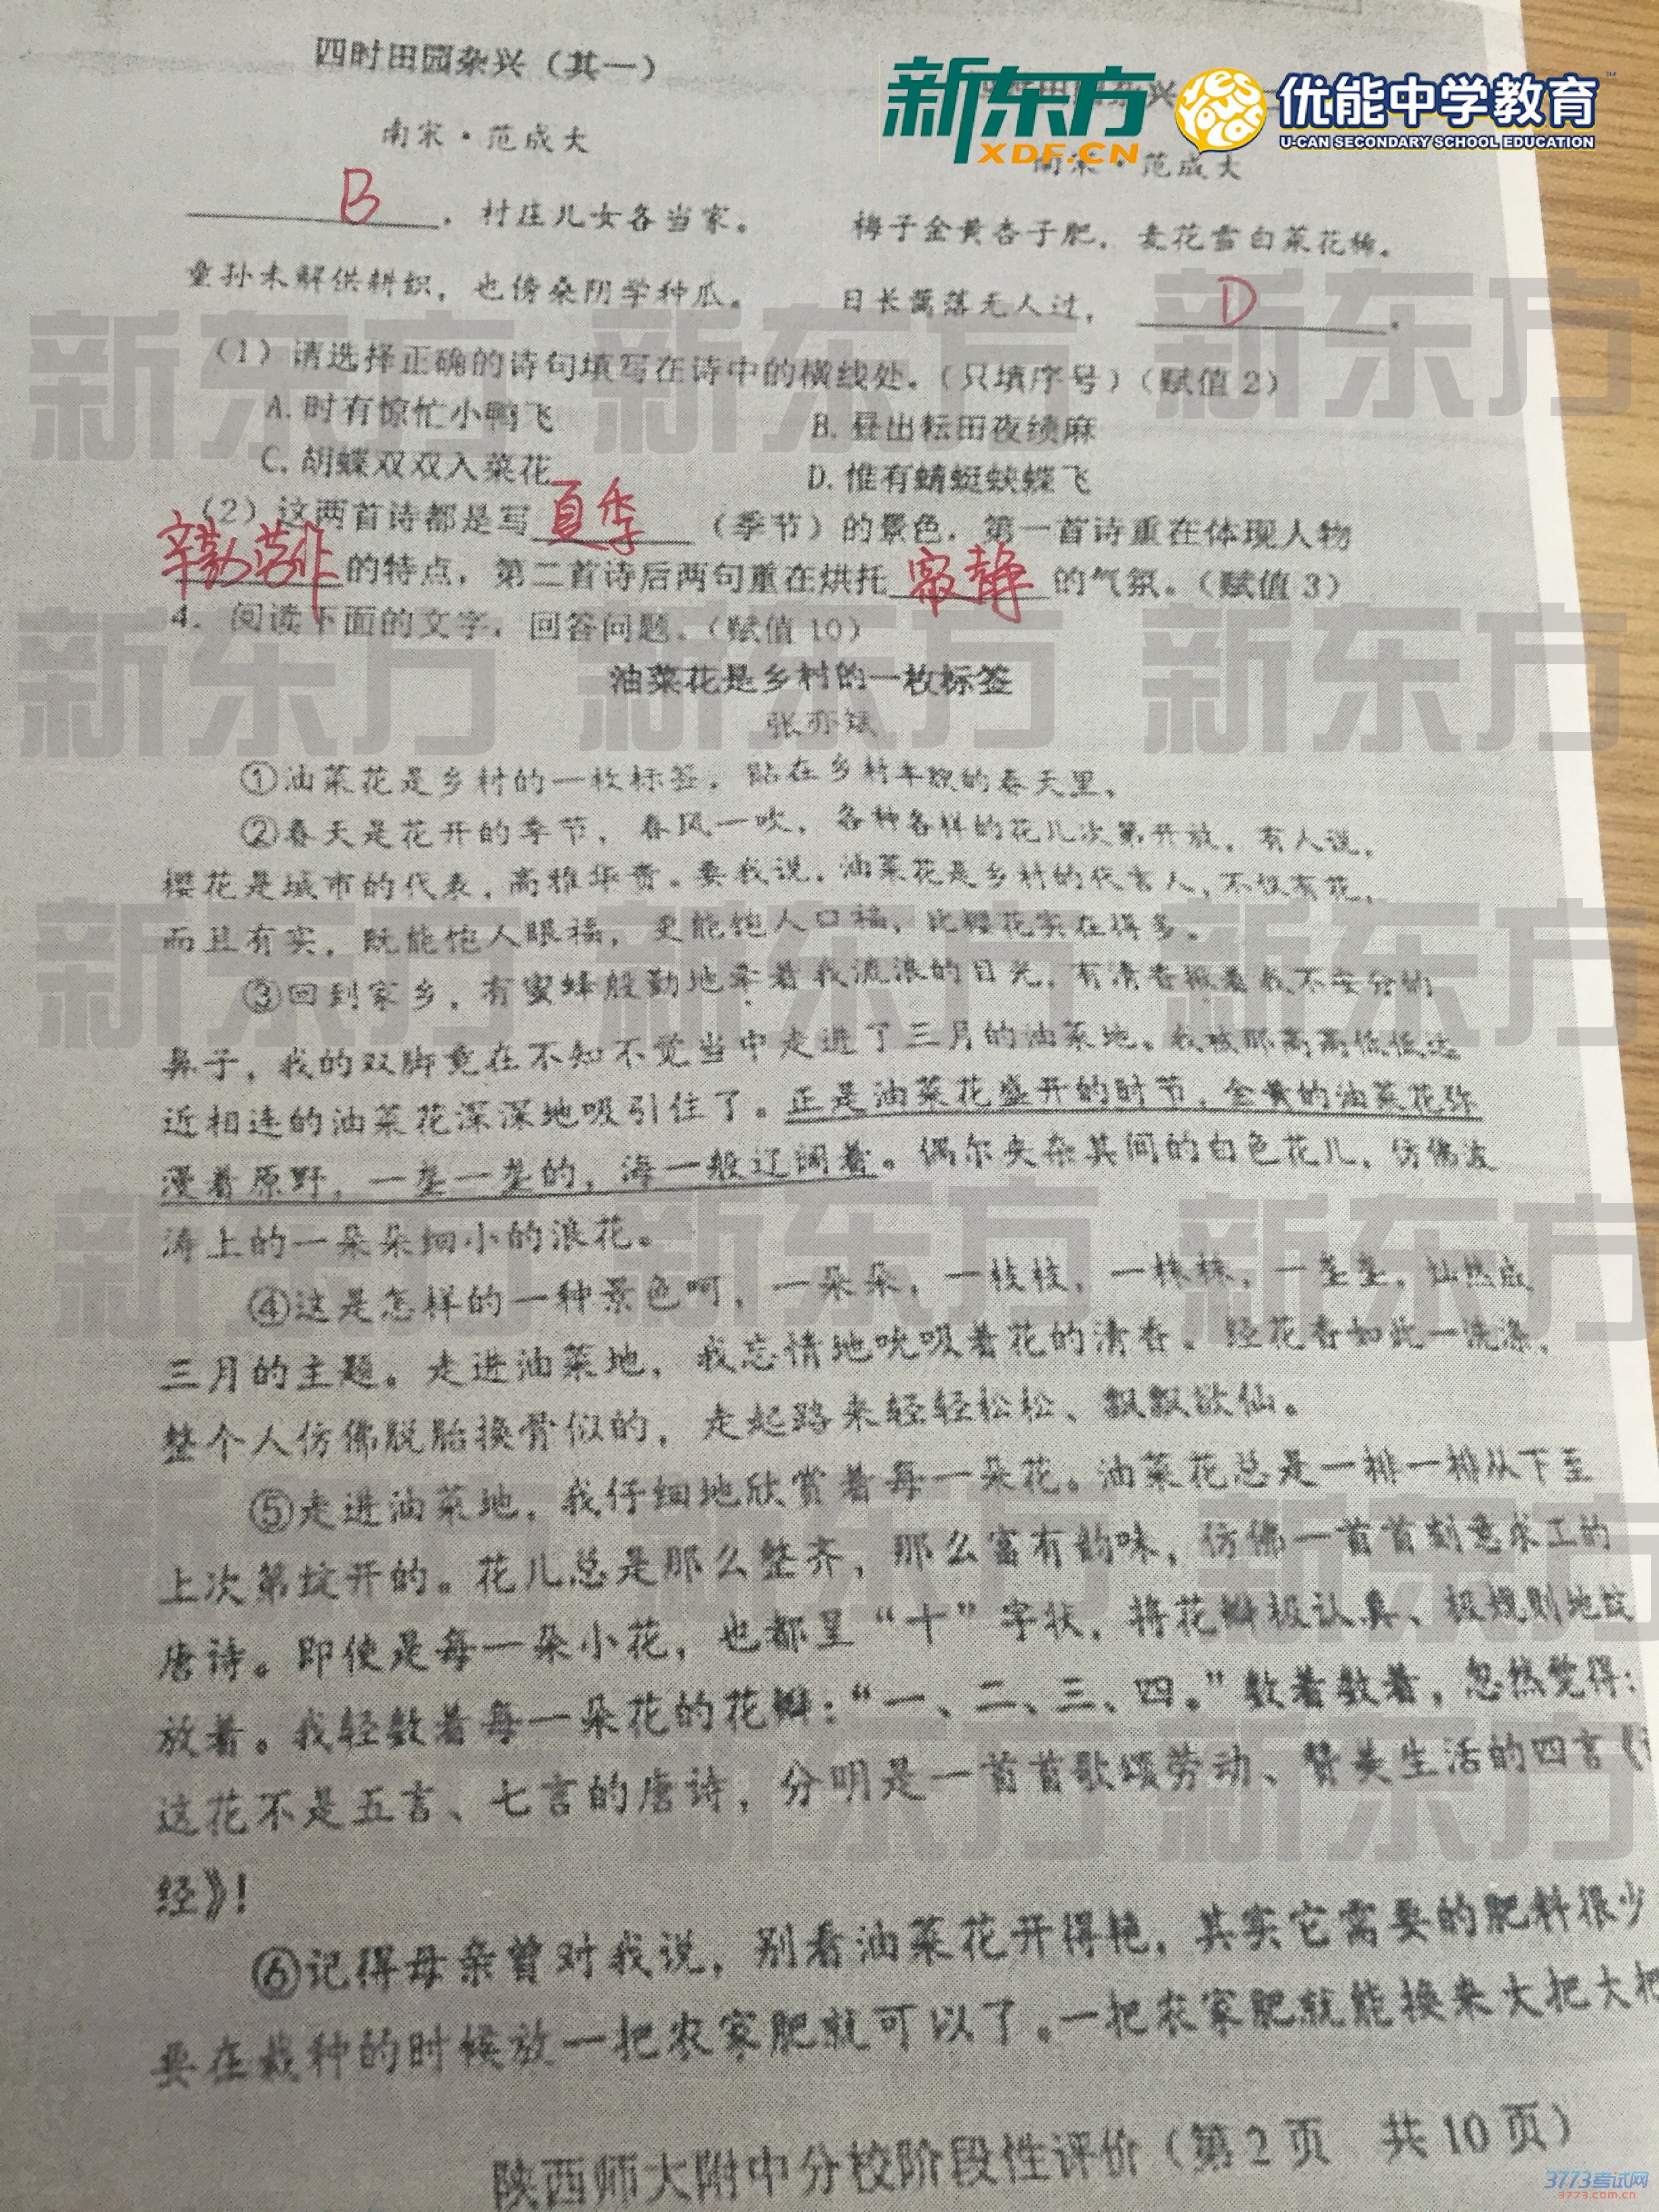 四时田园杂兴（其一）
新东方
XDF.CN
yes you can
优能中学教育
U-CAN SECONDARY SCHOOL EDUCATION
南宋·范成大
南宋·范成大
B，村庄儿女各当家。
梅子金黄杏子肥，麦花雪白菜花稀。
童孙未解供耕织，也傍桑阴学种瓜。
日长篱落无人过，D。
（1）请选择正确的诗句填写在诗中的横线处。（只填序号）（赋值2）
A. 时有惊忙小鸭飞
B. 昼出耘田夜绩麻
C. 胡蝶双双入菜花
D. 惟有蜻蜓蛱蝶飞
（2）这两首诗都是写夏季（季节）的景色，第一首诗重在体现人物
辛勤劳作的特点，第二首诗后两句重在烘托寂静的气氛。（赋值3）
4. 阅读下面的文字，回答问题。（赋值10）
油菜花是乡村的一枚标签
张亦斌
①油菜花是乡村的一枚标签，贴在乡村年貌的春天里。
②春天是花开的季节，春风一吹，各种各样的花儿次第开放。有人说，
樱花是城市的代表，高雅华贵。要我说，油菜花是乡村的代言人，不仅有花，
而且有实，既能饱人眼福，更能饱人口福，比樱花实在得多。
③回到家乡，有蜜蜂殷勤地牵着我流浪的目光，有清香撩着我不安分的
鼻子，我的双脚竟在不知不觉当中走进了三月的油菜地。我被那高高低低远
近相连的油菜花深深地吸引住了。正是油菜花盛开的时节，金黄的油菜花弥
漫着原野，一垄一垄的，海一般辽阔着。偶尔夹杂其间的白色花儿，仿佛波
涛上的一朵朵细小的浪花。
④这是怎样的一种景色呵，一朵朵，一枝枝，一株株，一垄垄，灿然成
三月的主题。走进油菜地，我忘情地吮吸着花的清香。经花香如此一洗涤，
整个人仿佛脱胎换骨似的，走起路来轻轻松松、飘飘欲仙。
⑤走进油菜地，我仔细地欣赏着每一朵花。油菜花总是一排一排从下至
上次第绽开的。花儿总是那么整齐，那么富有韵味，仿佛一首首刻意求工的
唐诗。即使是每一朵小花，也都呈“十”字状，将花瓣极认真、极规则地绽
放着。我轻数着每一朵花的花瓣：“一、二、三、四。”数着数着，忽然觉得：
这花不是五言、七言的唐诗，分明是一首首歌颂劳动、赞美生活的四言《诗
经》！
⑥记得母亲曾对我说，别看油菜花开得艳，其实它需要的肥料很少
要在栽种的时候放一把农家肥就可以了。一把农家肥就能换来大把大把
陕西师大附中分校阶段性评价（第2页 共10页）
3773考试网
3773.com.cn